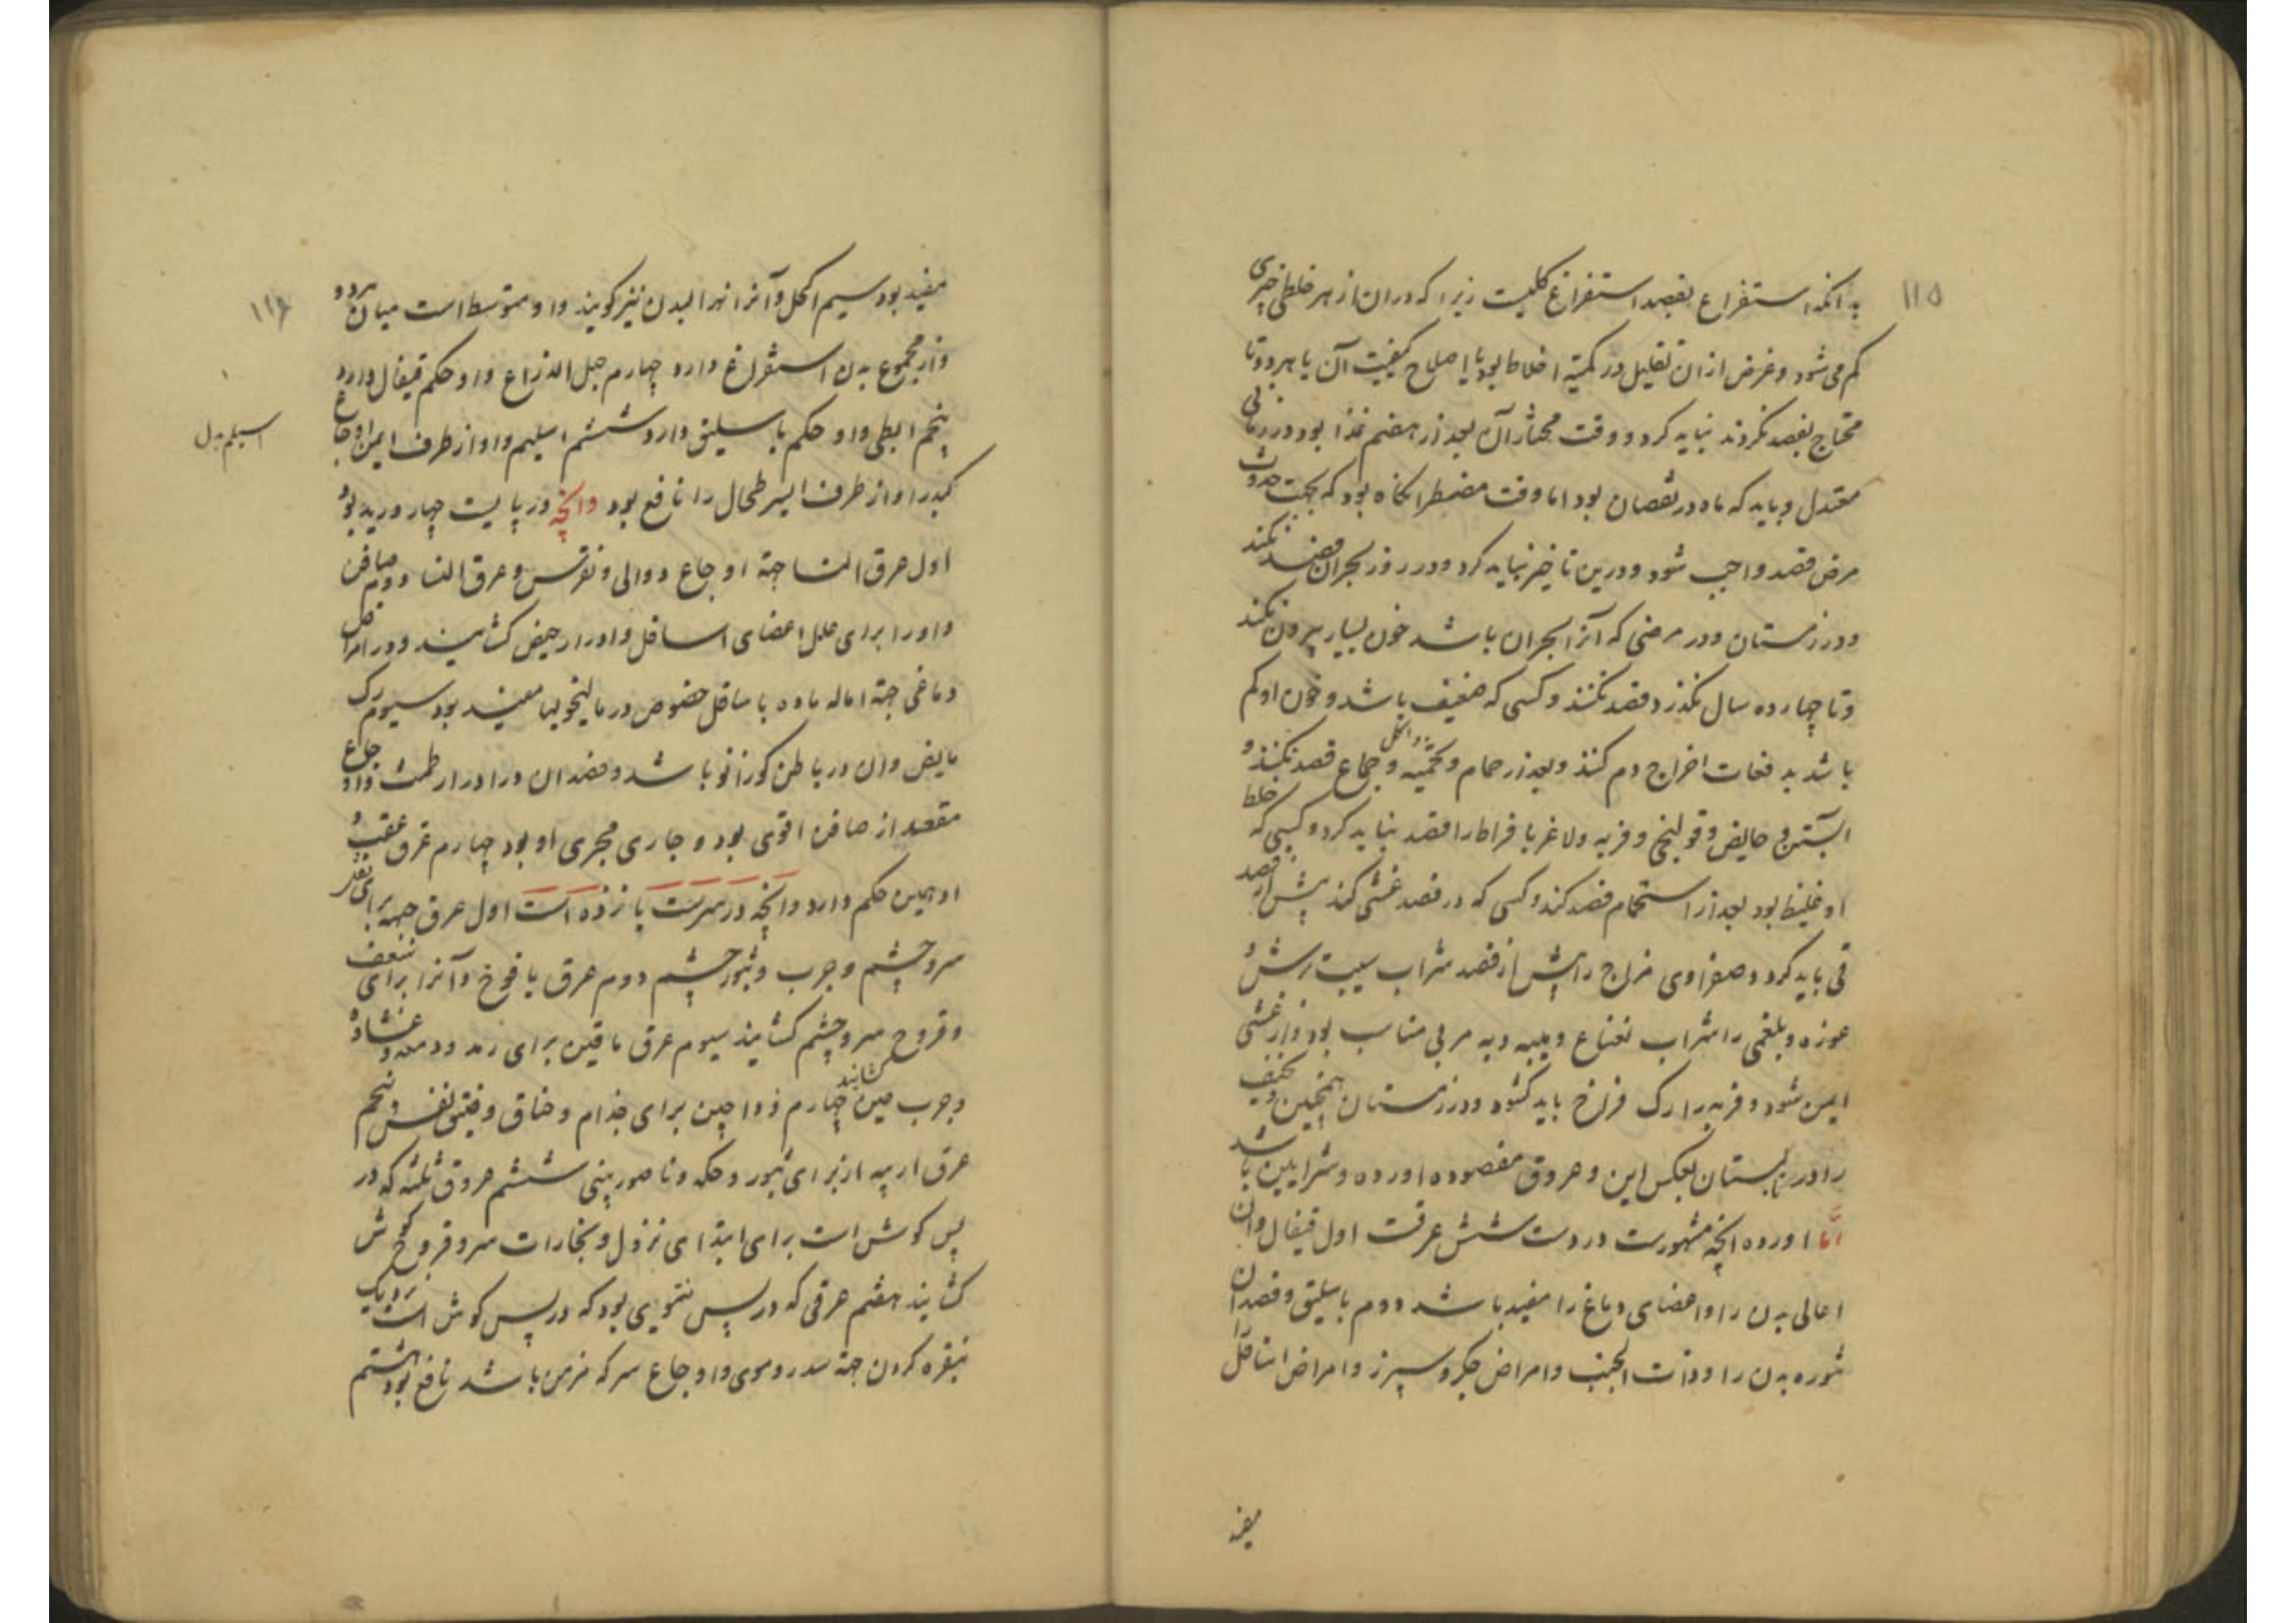 ۱۱۵
بدانکه استفراغ بفصد استفراغ کلیست زیرا که دران از هر خلطی چیزی
کم می شود و غرض ازان تقلیل در کمیة اخلاط بود یا اصلاح کیفیت آن یا هر دو و تا
محتاج بفصد نگردند نباید کرد و وقت مختار آن بعد از هضم غذا بود در زمانی
معتدل و باید که ماه در نقصان بود اما وقت مضطر انگاه بود که بجهت حدوث
مرض فصد واجب شود و درین تاخیر نباید کرد و در روز بحران فصد نکنند
و در زمستان و در مرضی که آنرا بحران باشد خون بسیار بیرون نکنند
و تا چهارده سال نگذرد فصد نکنند و کسی که ضعیف باشد و خون او کم
باشد بدفعات اخراج دم کنند و بعد از حمام و تخمه و جماع فصد نکنند و
آبستن و حایض و قولنجی و فربه و لاغر بافراط را فصد نباید کرد و کسی که خلط
او غلیظ بود بعد از استحمام فصد کند و کسی که در فصد غشی کند پیش از فصد
قی باید کرد و صفراوی مزاج را پیش از فصد شراب سیب ترش و
غوره و بلغمی را شراب نعناع و میبه و به مربی مناسب بود و از غشی
ایمن شود و فربه را رک فراخ باید کشود و در زمستان همچنین و نحیف
را در تابستان بعکس این و عروق مفصوده اورده و شرایین باشد
اما اورده انچه مشهورست در دست شش عرقست اول قیفال و ان
اعالی بدن را و اعضای دماغ را مفید باشد دوم باسلیق و فصد ان
تنوره بدن را و ذات الجنب و امراض جکر و سپرز و امراض اسافل را
مفید
۱۱۶
مفید بود سیم اکحل و آنرا نهر البدن نیز کویند و او متوسط است میان هر دو
و از مجموع بدن استفراغ دارد چهارم حبل الذراع و او حکم قیفال دارد
پنجم ابطی و او حکم باسلیق دارد ششم اسلیم و او از طرف ایمن اوجاع
اسیلم بدل
کبد را و از طرف ایسر طحال را نافع بود وانچه در پایست چهار ورید بود
اول عرق النسا جهة اوجاع دوالی و نقرس و عرق النسا دوم صافن
و او را برای علل اعضای اسافل و ادرار حیض کشایند و در امراض
دماغی جهة اماله ماده باسافل خصوص در مالیخولیا مفید بود سیوم رک
مابض و ان در باطن کو زانو باشد و فصد ان در ادرار طمث و اوجاع
مقعد از صافن اقوی بود و جاری مجری او بود چهارم عرق عقب و
او همین حکم دارد وانچه در سرست پانزده است اول عرق جبهه برای ثقل
سر و چشم و جرب و بثور چشم دوم عرق یافوخ و آنرا برای سعفه
و قروح سر و چشم کشایند سیوم عرق ماقین برای رمد و دمعه و غشاوه
و جرب عین کشایند چهارم وداجین برای جذام و خناق و ضیق نفس و پنجم
عرق ارنبه از برای بثور و حکه و ناصور بینی ششم عروق ثلثه که در
پس کوش است برای ابتدای نزول و بخارات سر و قروح کوش
کشایند هفتم عرقی که در پس نتویی بود که در پس کوش است نزدیک
بنقره کردن جهة سدر دموی و اوجاع سر که مزمن باشد نافع بود هشتم